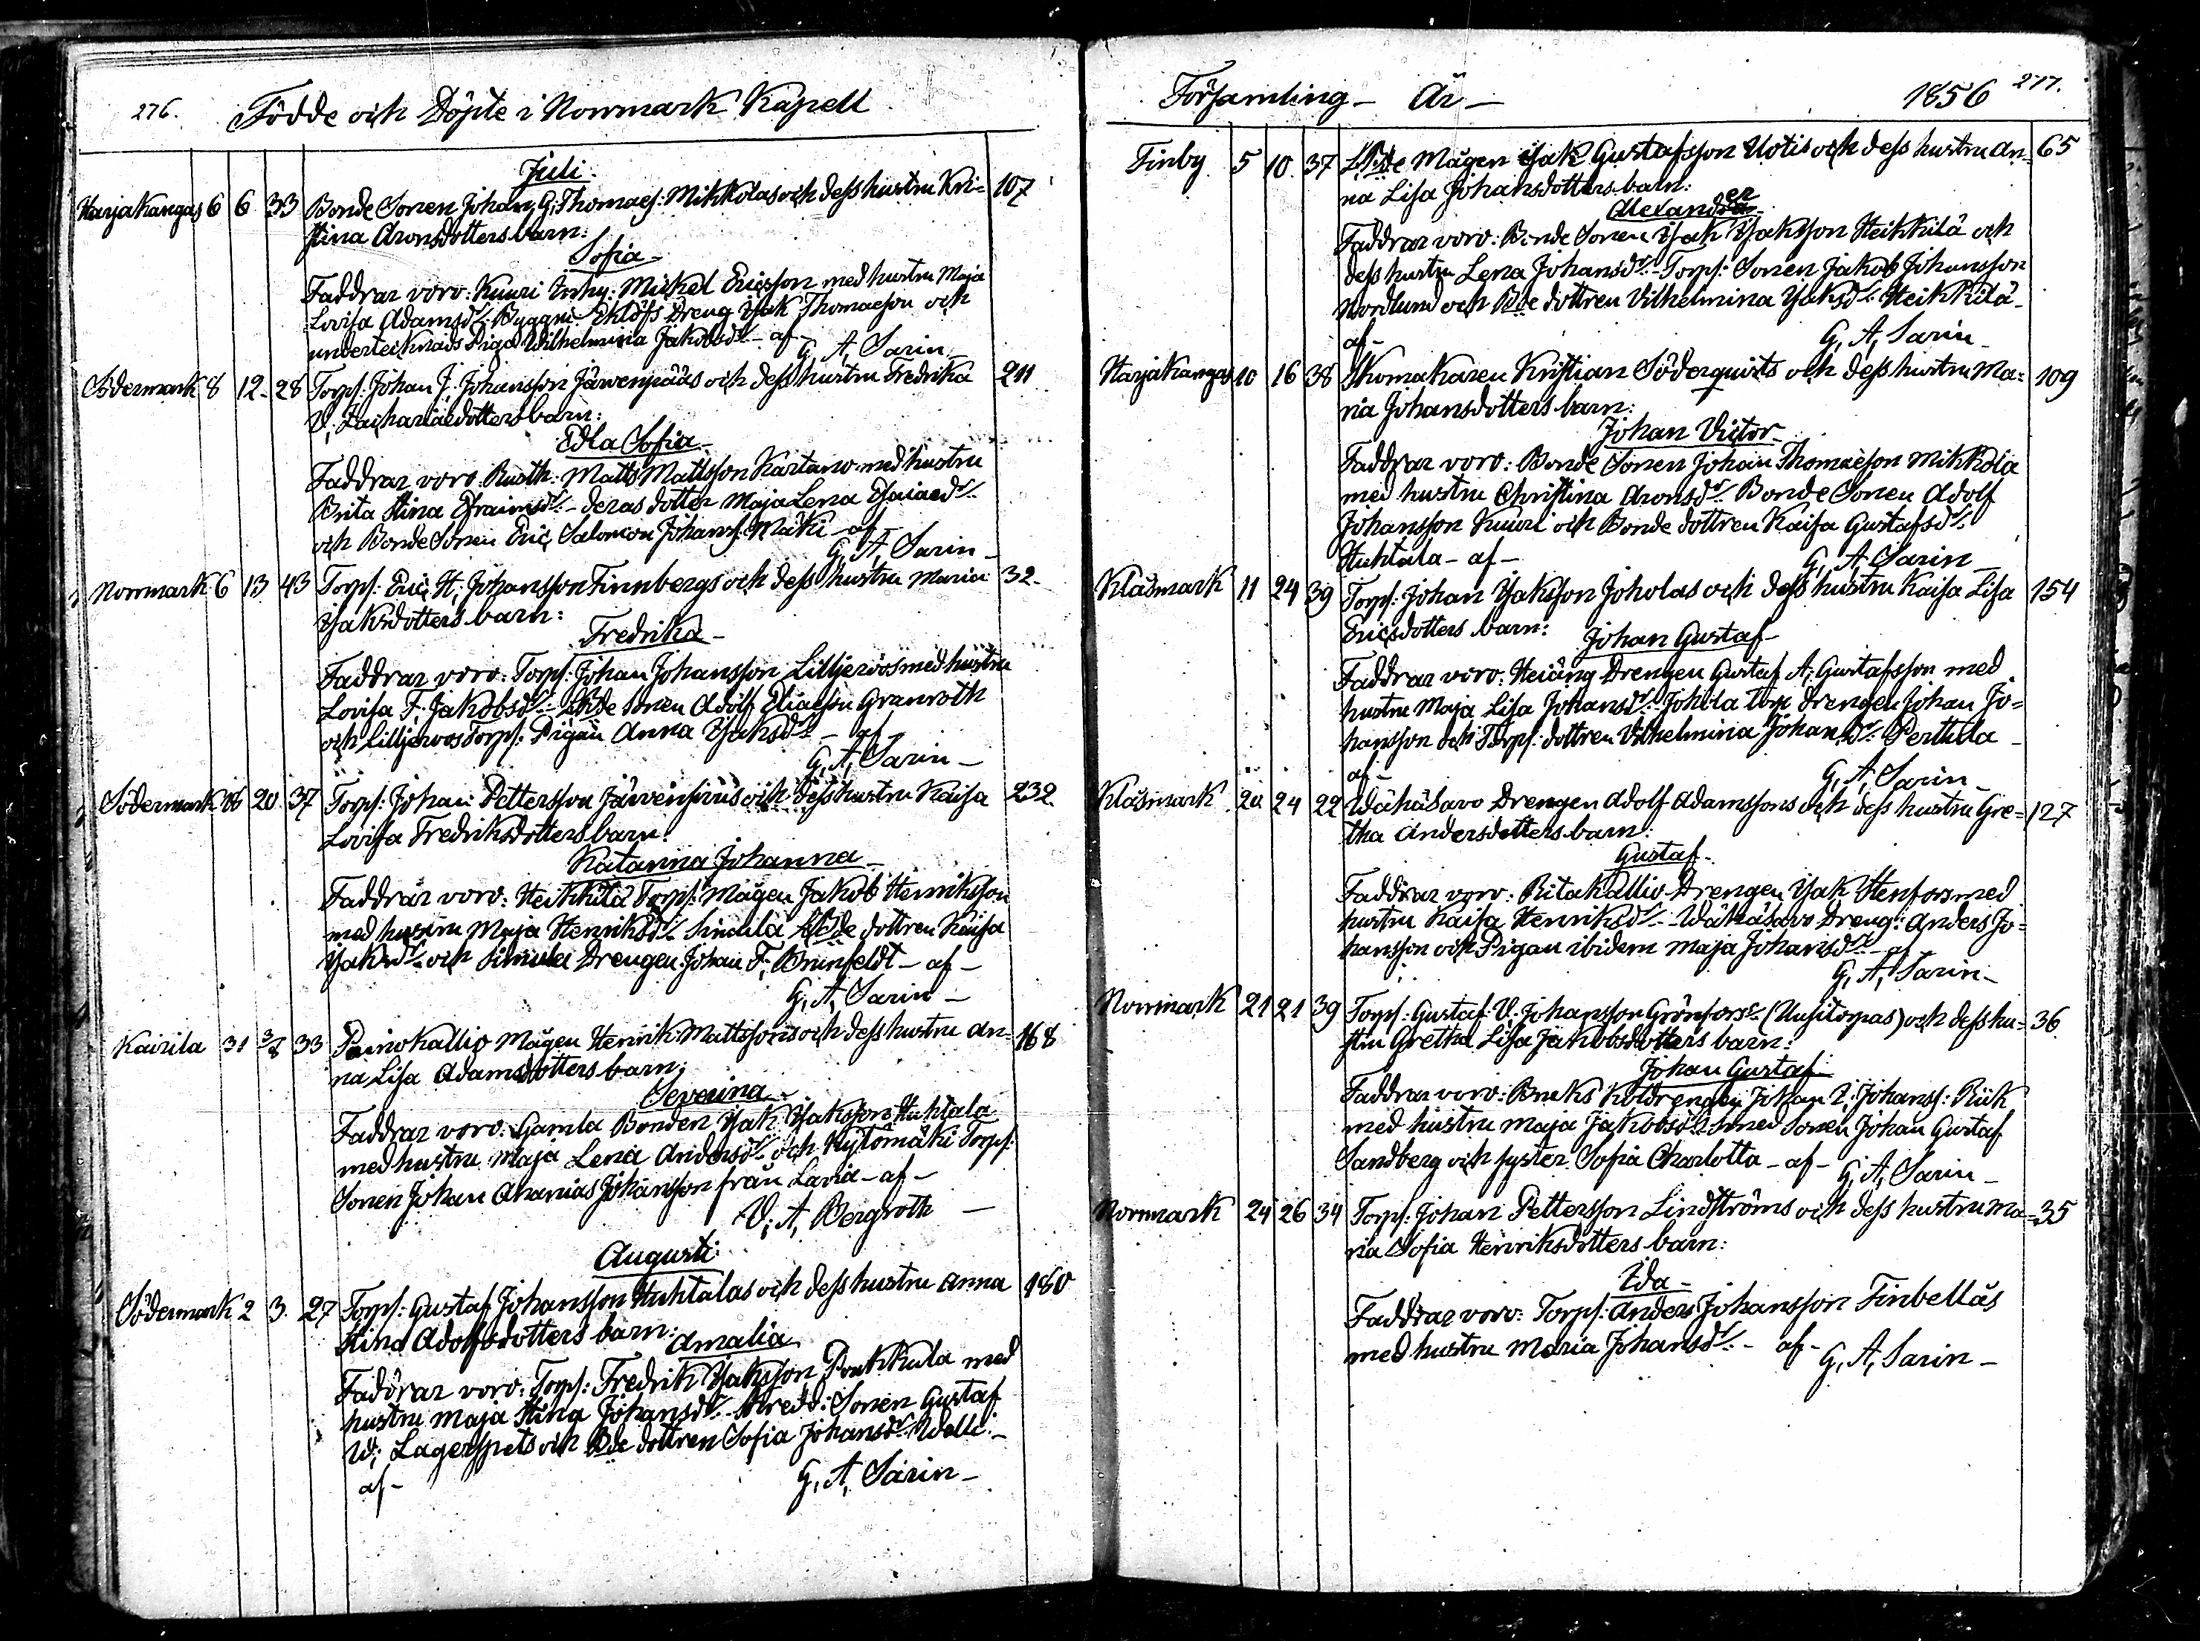 276. Födde och Döpte i Norrmark Kapell
Juli.
Harjakangas 6 6 33 Bonde Sonen Johan G; Thomaes: Mikkolas och dess hustru Kri= 107
stina Aronsdotters barn:
Sofia –
Faddrar voro: Kuuri Inhy: Mickel Ericsson med hustru Maja
Lovisa Adamsdr Byggm: Eklöfs Dreng Isak Thomaeson och
undertecknads Piga Wilhelmina Jakobsdr – af –
G, A, Sarin –
Södermark 8 12 28 Torp: Johan J; Johansson Järwenpääs och dess hustru Fredrika 211
V; Zachariaedotters barn:
Edla Sofia –
Faddrar voro: Rusth: Matts Mattsson Kartano med hustru
Brita Stina Efraimsdr – deras dotter Maja Lena Esaiaedr
och Bonde Sonen Eric Salomon Johans: Mäki – af –
G, A, Sarin –
Norrmark 6 13 43 Torp: Eric H; Johansson Finnbergs och dess hustru Maria 32
Isaksdotters barn:
Fredrika –
Faddrar voro: Torp: Johan Johansson Lilljeroos med hustru
Lovisa F; Jakobsdr – Sonen Adolf Eliaeson Granroth
och Lilljeroos Torp: Pigan Anna Isaksdr – af –
G, A, Sarin –
Södermark 20 37 Torp: Johan Pettersson Järvensivus och dess hustru Kaisa 232
Lovisa Fredriksdotters barn:
Katarina Johanna –
Faddrar voro: Heikkilä Torp: Mågen Jakob Henriksson
med hustru Maja Henriksdr Simula dottren Kaisa
Isaksdr och Simula Drengen Johan F; Brunfeldt – af –
G, A, Sarin –
Kairila 31 3/8 33 Painokallio Mågen Henrik Mattssons och dess hustru An= 168
na Lisa Adamsdotters barn;
Severina –
Faddrar voro: Gamla Bonden Isak Isaksson Huhtala
med hustru Maja Lena Andersdr och Kytömäki Torp:
Sonen Johan Ananias Johansson från Lavia – af –
V; A, Bergroth –
Augusti
Södermark 2 3 27 Torp: Gustaf Johansson Huhtalas och dess hustru Anna 180
Stina Adolfsdotters barn:
Amalia
Faddrar voro: Torp: Fredrik Isaksson Penkkula med
hustru Maja Stina Johansdr Sonen Gustaf
W; Lagerspets och Bde dottren Sofia Johansdr Welli –
af –
G, A, Sarin –
Församling – År – 1856 277.
Finby 5 10 37 Mågen Isak Gustafsson Uotis och dess hustru An= 65
na Lisa Johansdotters barn:
Alexander
Faddrar voro: Bonde Sonen Isak Isaksson Heikkilä och
dess hustru Lena Johansdr – Torp: Sonen Jakob Johansson
Nordlund och Bde dottren Vilhelmina Isaksdr Heikkilä –
af –
G, A, Sarin –
Harjakangas 10 16 38 Skomakaren Kristian Söderqvists och dess hustru Ma= 109
ria Johansdotters barn:
Johan Victor –
Faddrar voro: Bonde Sonen Johan Thomaeson Mikkola
med hustru Christina Aronsdr Bonde Sonen Adolf
Johansson Kuuri och Bonde dottren Kaisa Gustafsdr
Huhtala – af –
G, A, Sarin –
Klåsmark 11 24 39 Torp: Johan Isaksson Joholas och dess hustru Kaisa Lisa 154
Ericsdotters barn:
Johan Gustaf –
Faddrar voro: Drengen Gustaf A; Gustafsson med
hustru Maja Lisa Johansdr – Johola Torp drengen Johan Jo=
hansson och Torp: dottren Vilhelmina Johansdr Perttula –
af –
G, A, Sarin –
Klåsmark 20 24 22 Wähäsavo Drengen Adolf Adamssons och dess hustru Gre= 127
tha Andersdotters barn:
Gustaf –
Faddrar voro: Ritakallio Drengen Isak Stenfors med
hustru Kaisa Henriksdr – Wähäsavo Dreng: Anders Jo=
hansson och Pigan ibidem Maja Johansdr – af
G, A, Sarin –
Norrmark 21 21 39 Torp: Gustaf V. Johansson Grönfors (Uusitorpas) och dess hu= 36
stru Gretha Lisa Jakobsdotters barn:
Johan Gustaf –
Faddrar voro: Bruks Koldrengen Johan Johans: Riik
med hustru Maja Jakobsdr Smed Sonen Johan Gustaf
Sandberg och syster Sofia Charlotta – af –
G, A, Sarin –
Norrmark 24 26 34 Torp: Johan Pettersson Lindströms och dess hustru Ma= 35
ria Sofia Henriksdotters barn:
Ida –
Faddrar voro: Torp: Anders Johansson Finbellås
med hustru Maria Johansdr – af –
G, A, Sarin –